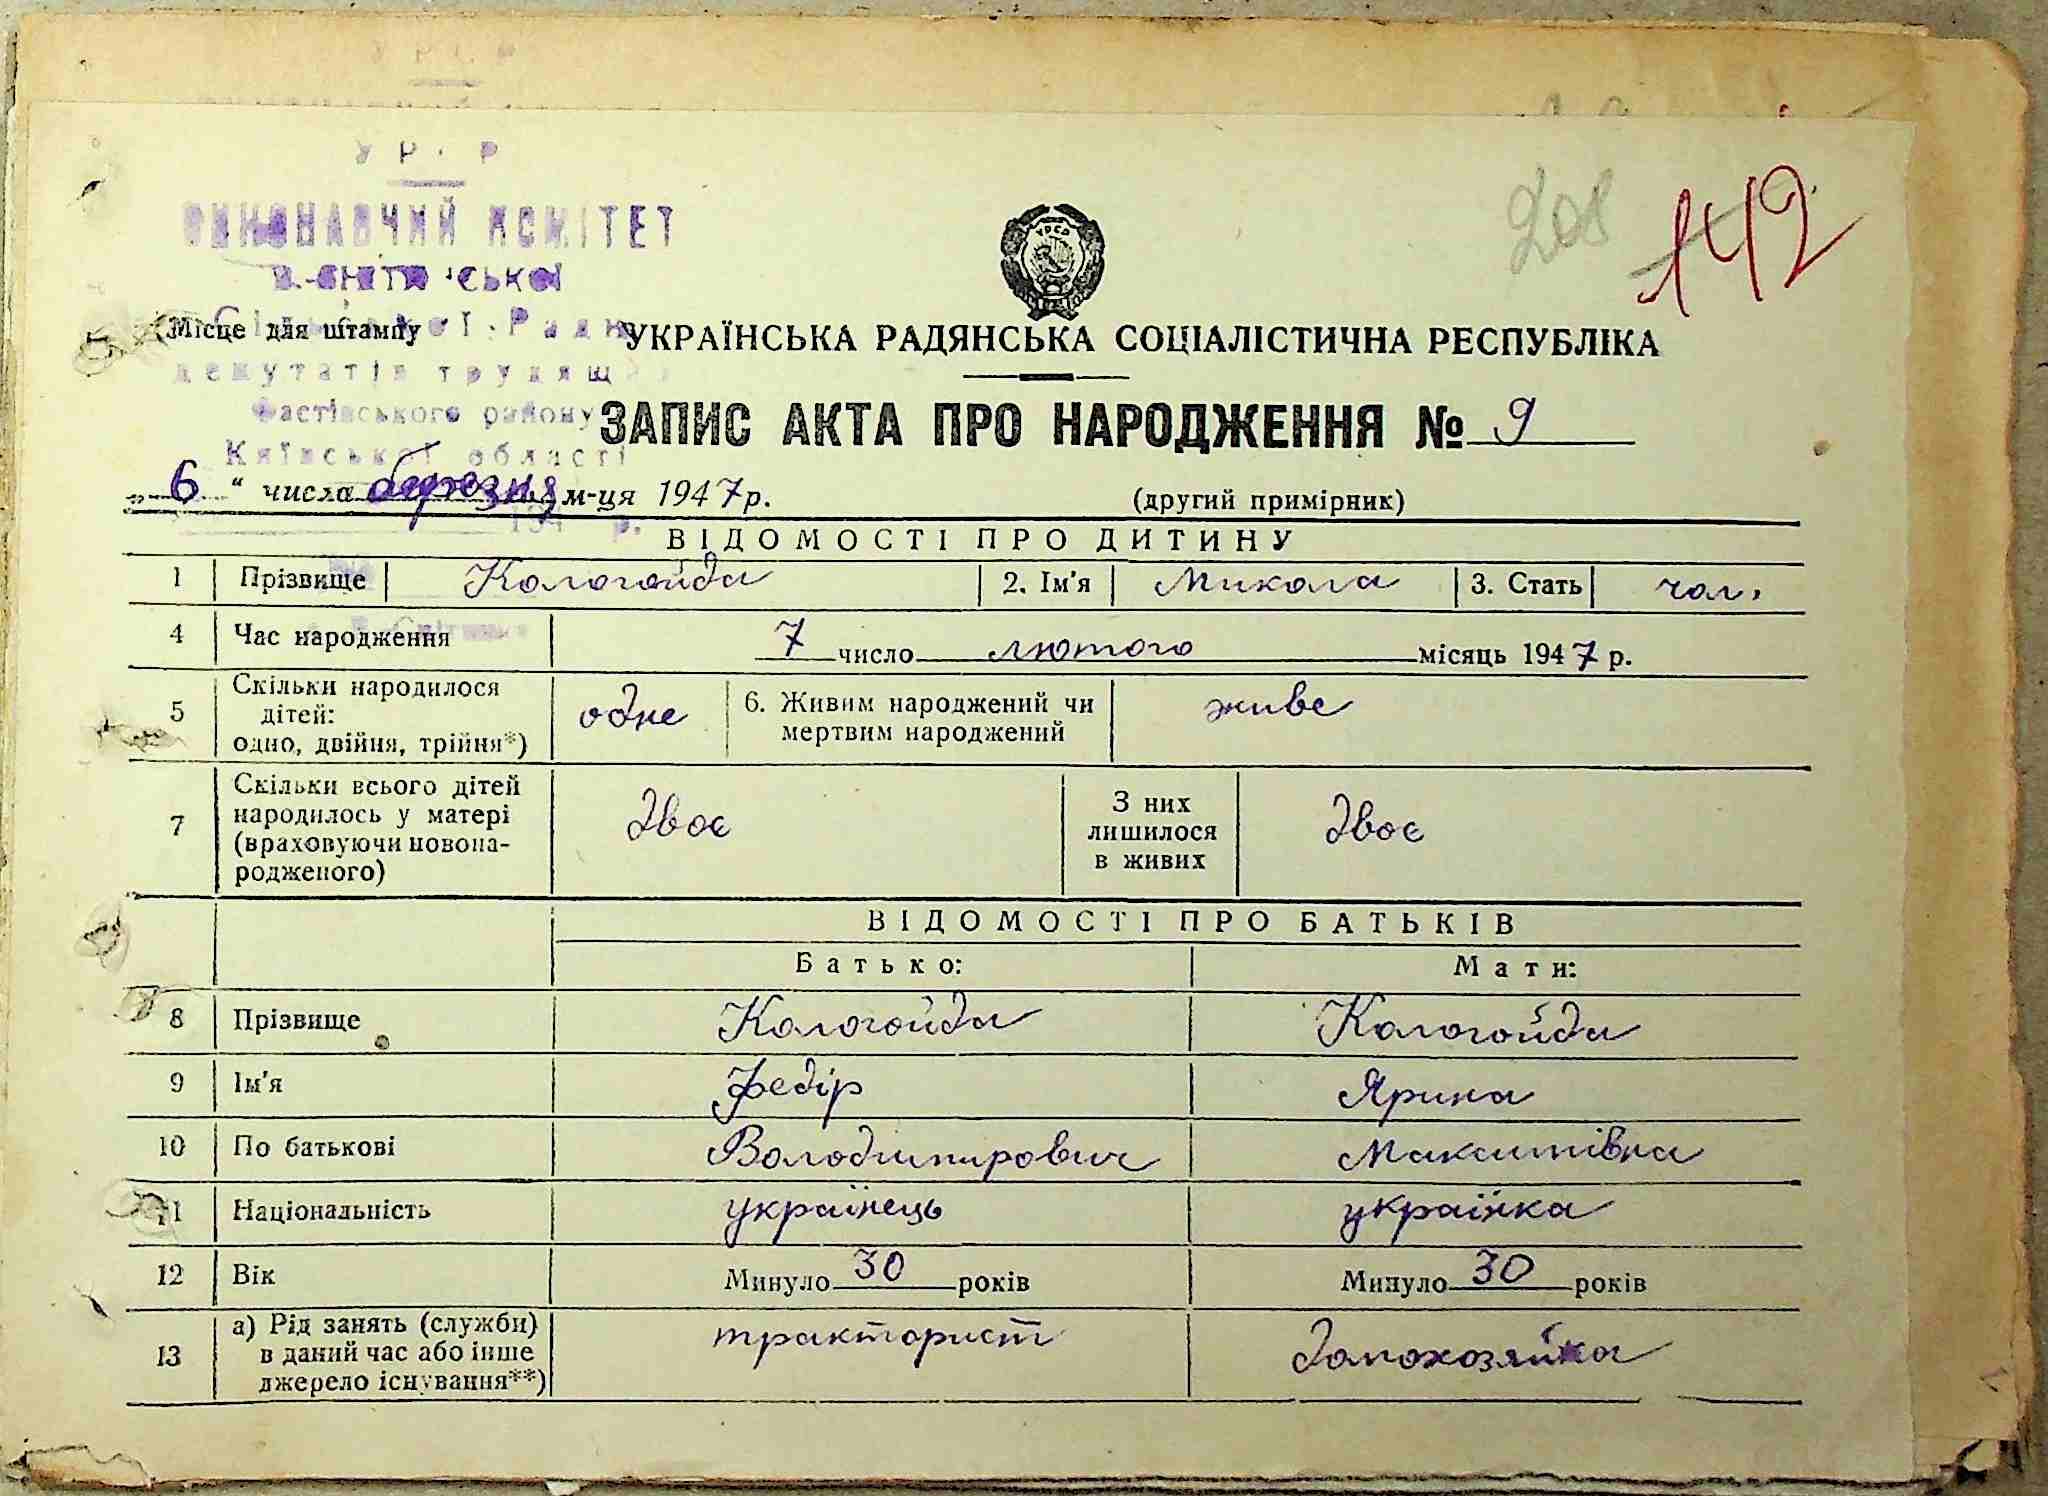 УРСР
ВИКОНАВЧИЙ КОМІТЕТ
В.-СНІТИНСЬКОЇ
Сільської Ради
депутатів трудящ
Фастівського району
Київської області
194 р.
208
142
Місце для штампу
УКРАЇНСЬКА РАДЯНСЬКА СОЦІАЛІСТИЧНА РЕСПУБЛІКА
ЗАПИС АКТА ПРО НАРОДЖЕННЯ № 9
„6“ числа березня м-ця 1947 р. (другий примірник)
ВІДОМОСТІ ПРО ДИТИНУ
1 Прізвище Кологойда 2. Ім'я Микола 3. Стать чол.
4 Час народження 7 число лютого місяць 1947 р.
5 Скільки народилося дітей: одно, двійня, трійня*) одне 6. Живим народжений чи мертвим народжений живе
7 Скільки всього дітей народилось у матері (враховуючи новонародженого) двоє З них лишилося в живих двоє
ВІДОМОСТІ ПРО БАТЬКІВ
Батько: Мати:
8 Прізвище Кологойда Кологойда
9 Ім'я Федір Ярина
10 По батькові Володимирович Максимівна
11 Національність українець українка
12 Вік Минуло 30 років Минуло 30 років
13 а) Рід занять (служби) в даний час або інше джерело існування**) тракторист домохозяйка